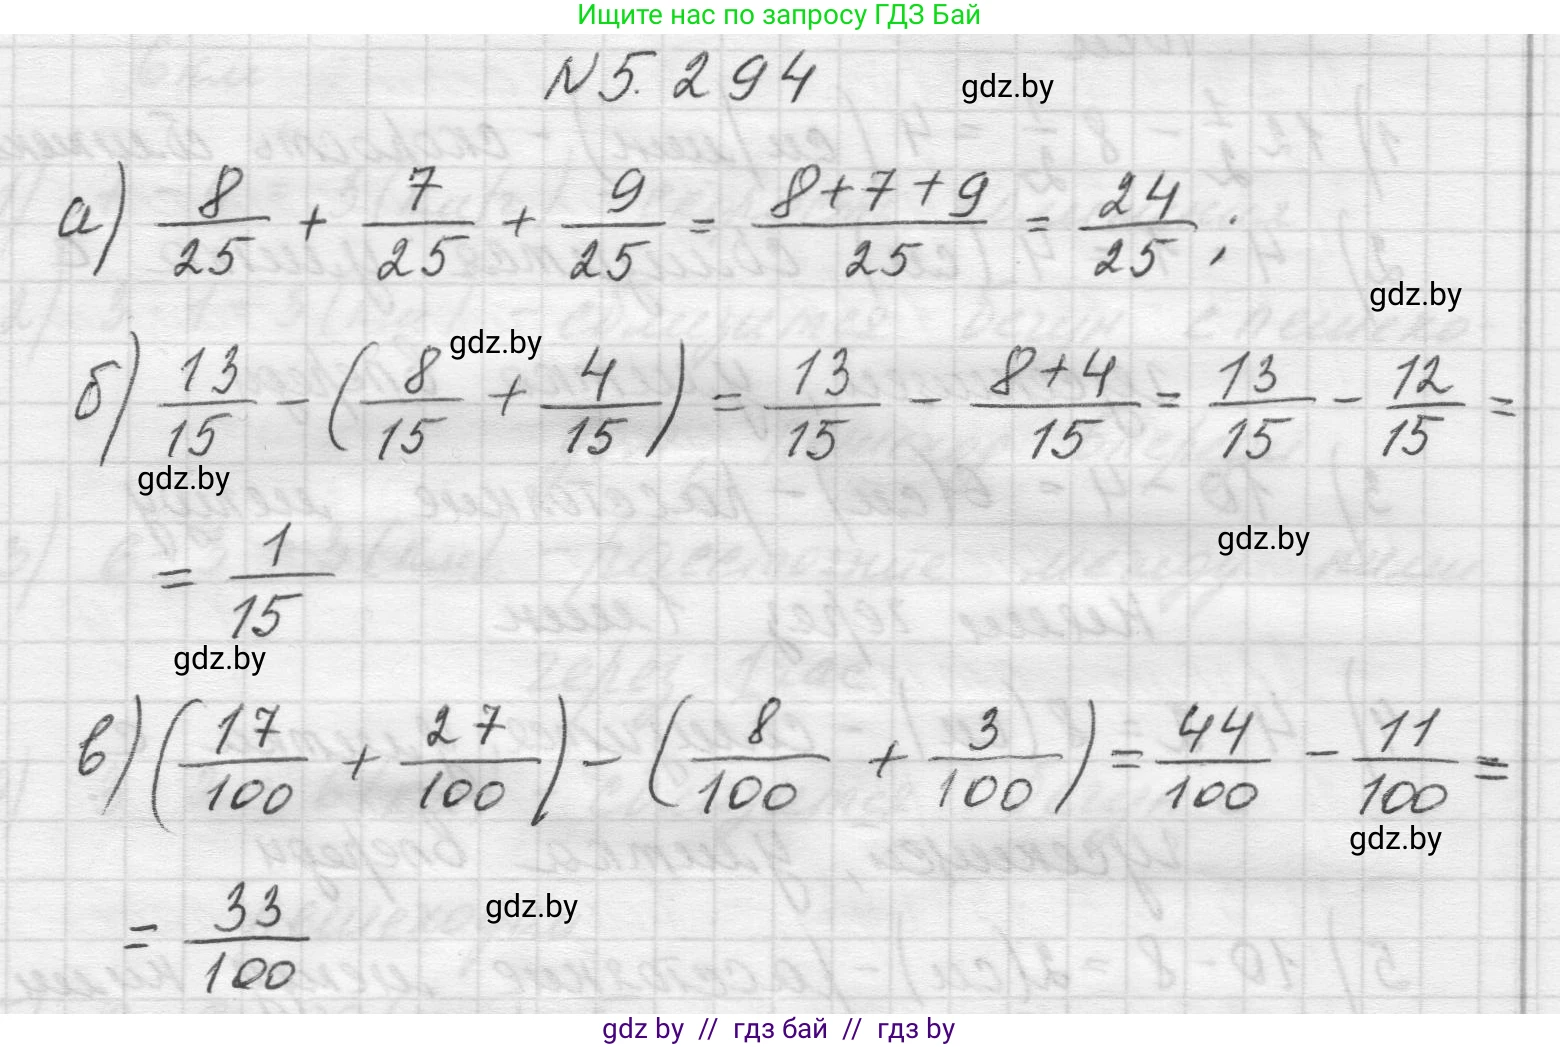 Ищите нас по запросу ГДЗ Бай
N 5.294
gdz.by
а) 8/25 + 7/25 + 9/25 = (8+7+9)/25 = 24/25 ;
gdz.by
gdz.by
б) 13/15 - (8/15 + 4/15) = 13/15 - (8+4)/15 = 13/15 - 12/15 =
gdz.by
gdz.by
= 1/15
gdz.by
в) (17/100 + 27/100) - (8/100 + 3/100) = 44/100 - 11/100 =
gdz.by
gdz.by
= 33/100
gdz by // гдз бай // гдз by